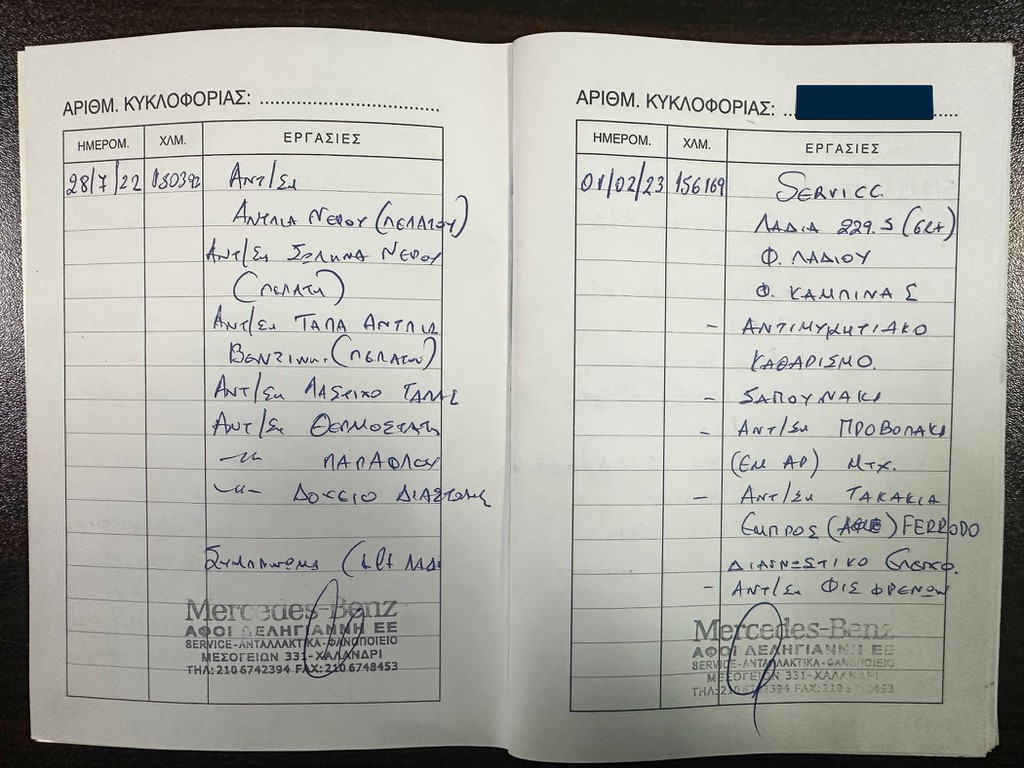 ΑΡΙΘΜ. ΚΥΚΛΟΦΟΡΙΑΣ: ................................
ΗΜΕΡΟΜ. ΧΛΜ. ΕΡΓΑΣΙΕΣ
28/7/22 150392 ΑΝΤ/ΣΗ
ΑΝΤΛΙΑ ΝΕΡΟΥ (ΠΕΛΑΤΟΥ)
ΑΝΤ/ΣΗ ΣΩΛΗΝΑ ΝΕΡΟΥ
(ΠΕΛΑΤΗ)
ΑΝΤ/ΣΗ ΤΑΠΑ ΑΝΤΛΙΑΣ
ΒΕΝΖΙΝΗΣ (ΠΕΛΑΤΟΥ)
ΑΝΤ/ΣΗ ΛΑΣΤΙΧΟ ΤΑΠΑΣ
ΑΝΤ/ΣΗ ΘΕΡΜΟΣΤΑΤΗ
-〃- ΠΑΡΑΦΛΟΥ
-〃- ΔΟΧΕΙΟ ΔΙΑΣΤΟΛΗΣ
ΣΥΜΠΛΗΡΩΜΑ (1 Lt ΛΑΔΙ
Mercedes-Benz
ΑΦΟΙ ΔΕΛΗΓΙΑΝΝΗ ΕΕ
SERVICE-ΑΝΤΑΛΛΑΚΤΙΚΑ-ΦΑΝΟΠΟΙΕΙΟ
ΜΕΣΟΓΕΙΩΝ 331-ΧΑΛΑΝΔΡΙ
ΤΗΛ: 210 6742394 FAX: 210 6748453
ΑΡΙΘΜ. ΚΥΚΛΟΦΟΡΙΑΣ: .......
ΗΜΕΡΟΜ. ΧΛΜ. ΕΡΓΑΣΙΕΣ
01/02/23 156169 SERVICE
ΛΑΔΙΑ 229.5 (6Lt)
Φ. ΛΑΔΙΟΥ
Φ. ΚΑΜΠΙΝΑΣ
- ΑΝΤΙΜΥΚΗΤΙΑΚΟ
ΚΑΘΑΡΙΣΜΟ.
- ΣΑΠΟΥΝΑΚΙ
- ΑΝΤ/ΣΗ ΠΡΟΒΟΛΑΚΙ
(ΕΜ ΑΡ) ΜΤΧ.
- ΑΝΤ/ΣΗ ΤΑΚΑΚΙΑ
ΕΜΠΡΟΣ FERRODO
ΔΙΑΓΝΩΣΤΙΚΟ ΕΛΕΓΧΟ.
- ΑΝΤ/ΣΗ ΦΙΣ ΦΡΕΝΩΝ
Mercedes-Benz
ΑΦΟΙ ΔΕΛΗΓΙΑΝΝΗ ΕΕ
SERVICE-ΑΝΤΑΛΛΑΚΤΙΚΑ-ΦΑΝΟΠΟΙΕΙΟ
ΜΕΣΟΓΕΙΩΝ 331-ΧΑΛΑΝΔΡΙ
ΤΗΛ: FAX: